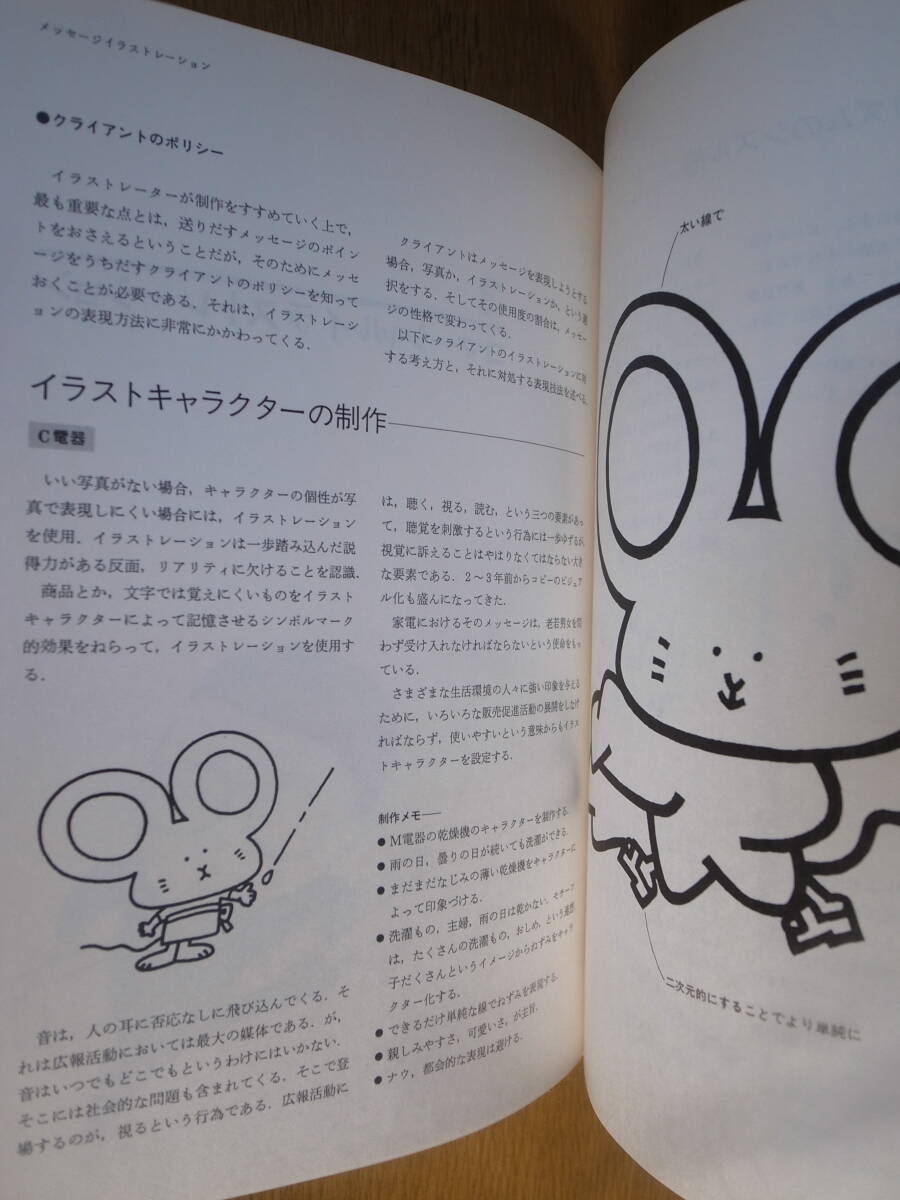 メッセージイラストレーション
●クライアントのポリシー
イラストレーターが制作をすすめていく上で，
最も重要な点とは，送りだすメッセージのポイン
トをおさえるということだが，そのためにメッセ
ージをうちだすクライアントのポリシーを知って
おくことが必要である．それは，イラストレーシ
ョンの表現方法に非常にかかわってくる．
クライアントはメッセージを表現しようとする
場合，写真か，イラストレーションか，という選
択をする．そしてその使用度の割合は，メッセー
ジの性格で変わってくる．
以下にクライアントのイラストレーションに対
する考え方と，それに対処する表現技法を述べる．
イラストキャラクターの制作
C電器
いい写真がない場合，キャラクターの個性が写
真で表現しにくい場合には，イラストレーション
を使用．イラストレーションは一歩踏み込んだ説
得力がある反面，リアリティに欠けることを認識．
商品とか，文字では覚えにくいものをイラスト
キャラクターによって記憶させるシンボルマーク
的効果をねらって，イラストレーションを使用す
る．
音は，人の耳に否応なしに飛び込んでくる．そ
れは広報活動においては最大の媒体である．が，
音はいつでもどこでもというわけにはいかない．
そこには社会的な問題も含まれてくる．そこで登
場するのが，視るという行為である．広報活動に
は，聴く，視る，読む，という三つの要素があっ
て，聴覚を刺激するという行為には一歩ゆずるが，
視覚に訴えることはやはりなくてはならない大き
な要素である．2〜3年前からコピーのビジュア
ル化も盛んになってきた．
家電におけるそのメッセージは，老若男女を問
わず受け入れなければならないという使命をもっ
ている．
さまざまな生活環境の人々に強い印象を与える
ために，いろいろな販売促進活動の展開をしなけ
ればならず，使いやすいという意味からもイラス
トキャラクターを設定する．
制作メモ──
●M電器の乾燥機のキャラクターを制作する．
●雨の日，曇りの日が続いても洗濯ができる．
●まだまだなじみの薄い乾燥機をキャラクターに
よって印象づける．
●洗濯もの，主婦，雨の日は乾かない．モチーフ
は，たくさんの洗濯もの，おしめ，という連想
子だくさんというイメージからねずみをキャラ
クター化する．
●できるだけ単純な線でねずみを表現する．
●親しみやすさ，可愛いさ，が主旨．
●ナウ，都会的な表現は避ける．
太い線で
二次元的にすることでより単純に